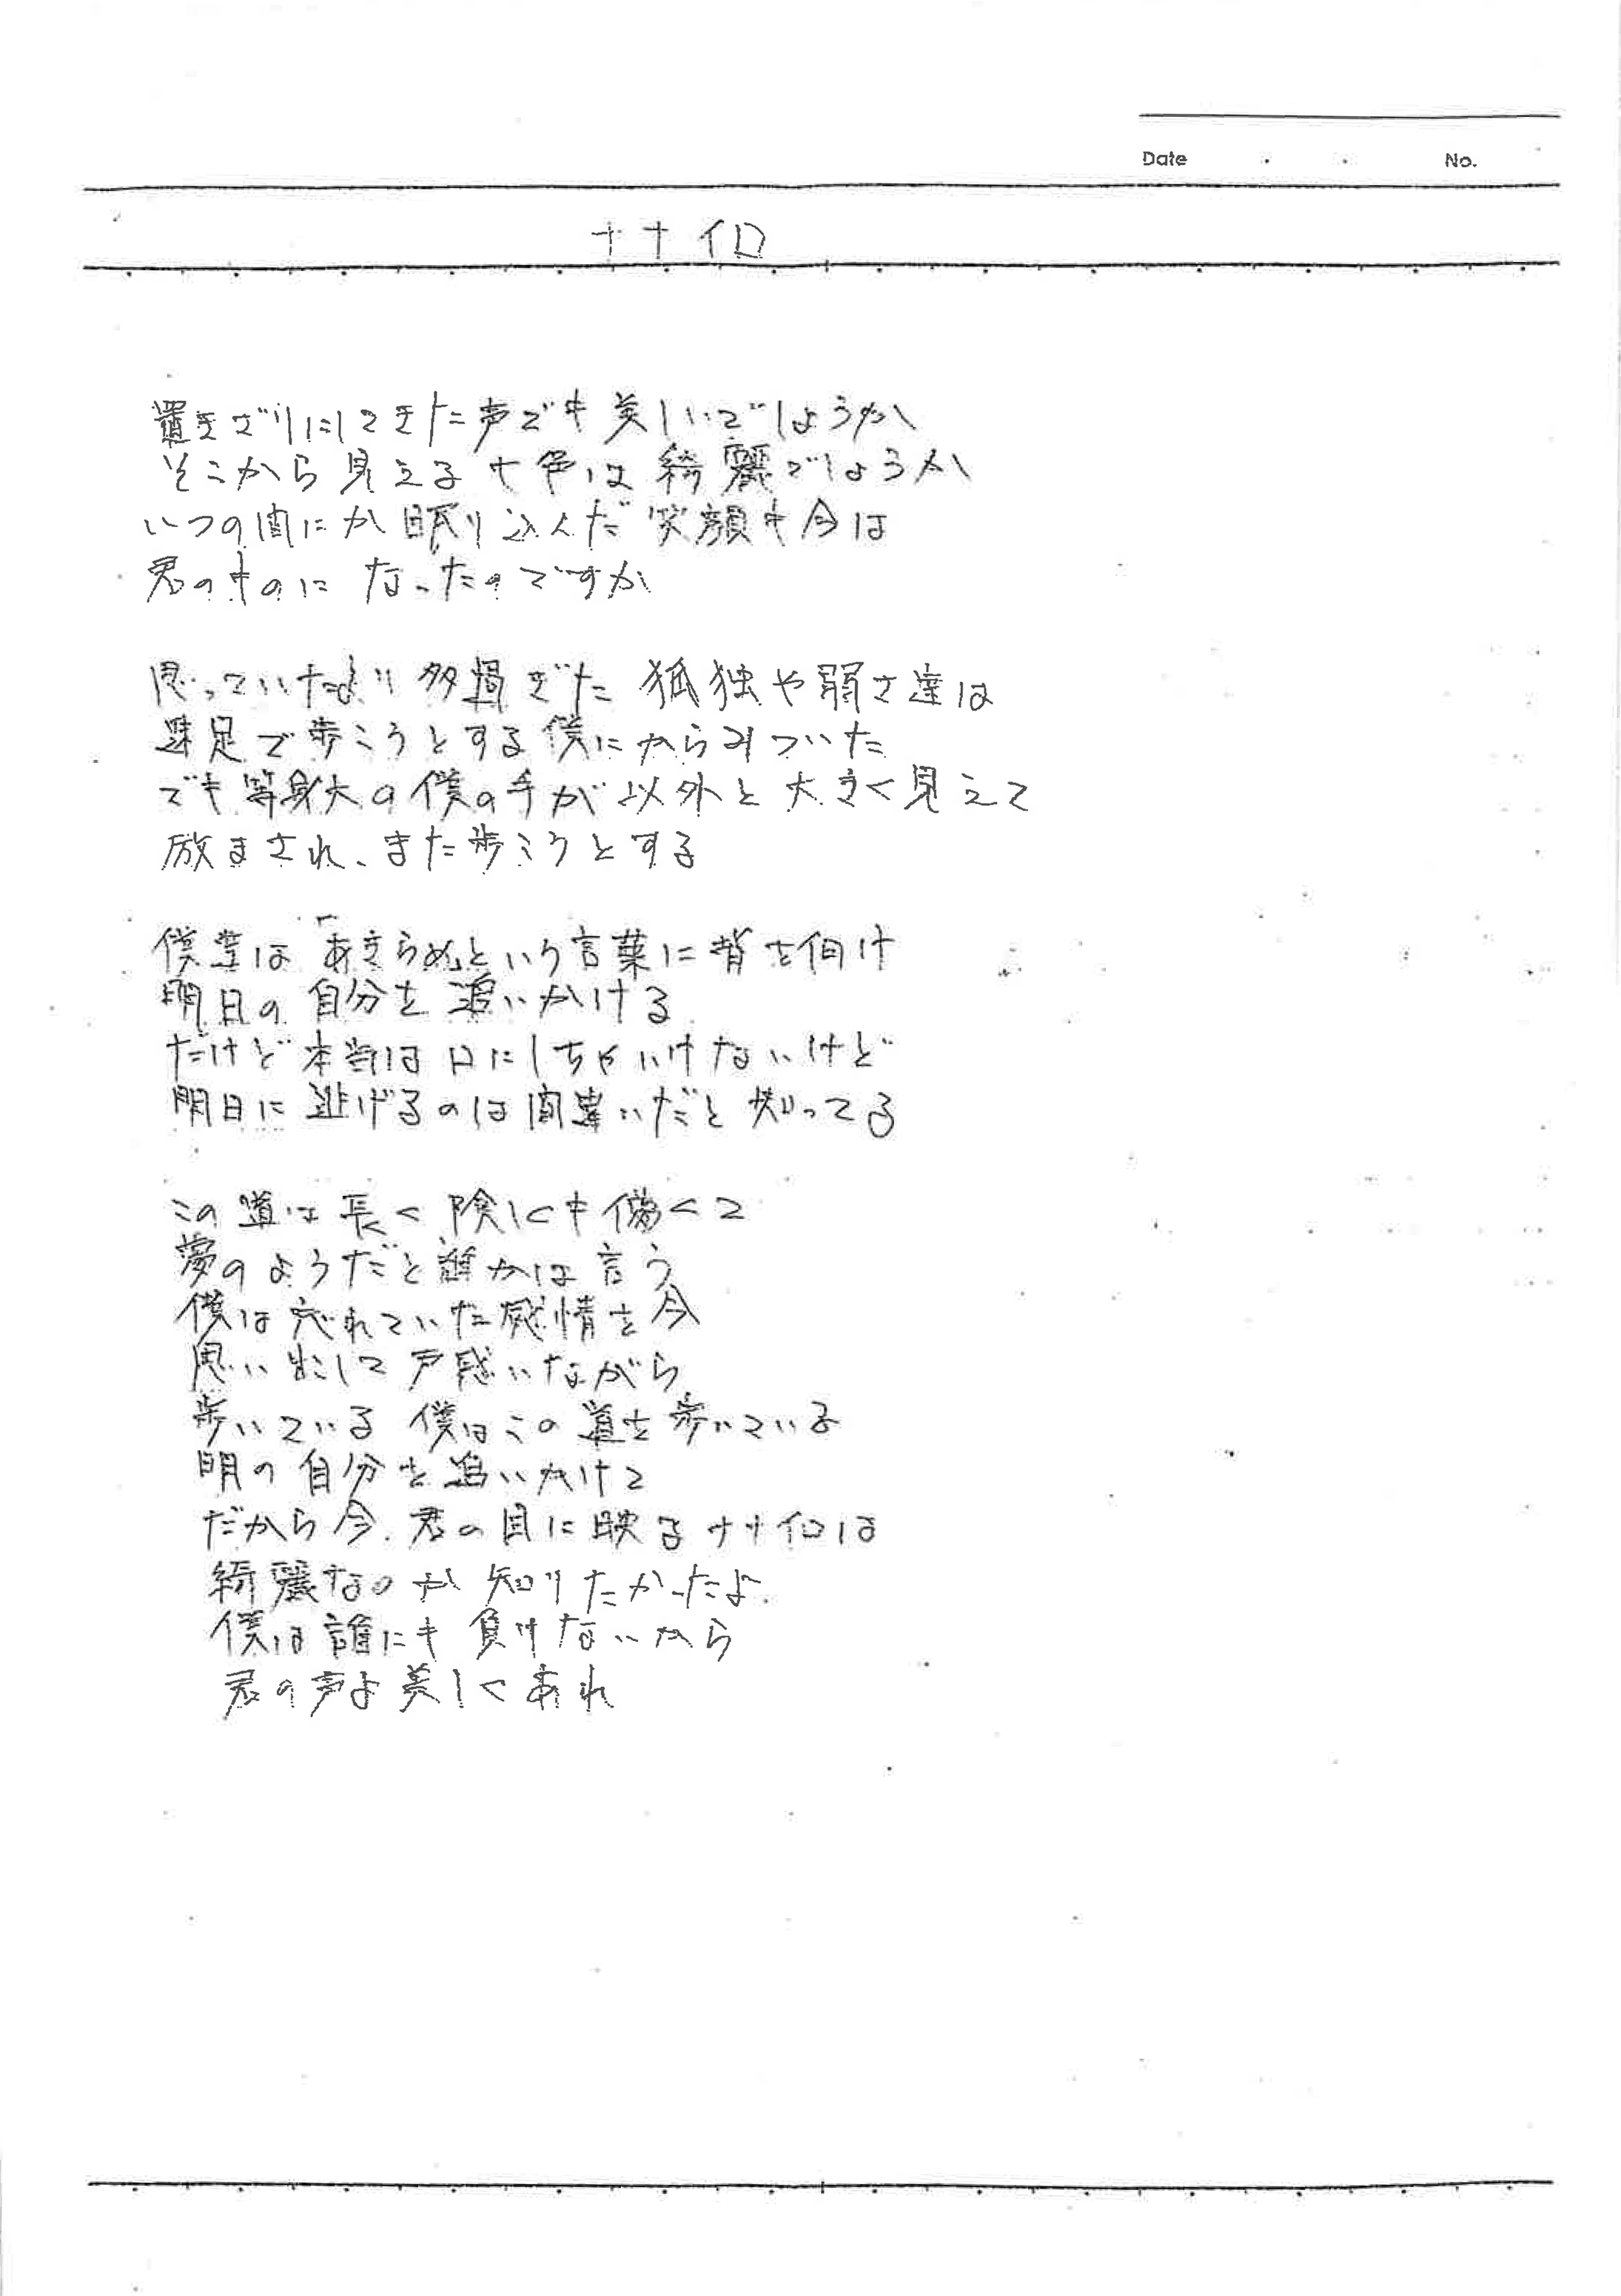 Date . . No.
ナナイロ
置きざりにしてきた声でも美しいでしょうか
そこから見える七色は綺麗でしょうか
いつの間にか眠り込んだ笑顔も今は
君のものになったのですか
思っていたより多過ぎた 孤独や弱さ達は
裸足で歩こうとする僕にからみついた
でも等身大の僕の手が以外と大きく見えて
放まされ、また歩こうとする
僕達は「あきらめ」という言葉に背を向け
明日の自分を追いかける
だけど本当は口にしちゃいけないけど
明日に逃げるのは間違いだと知ってる
この道は長く険しくも儚くて
夢のようだと誰かは言う
僕は忘れていた感情を今
思い出して戸惑いながら
歩いている 僕はこの道を歩いている
明の自分を追いかけて
だから今、君の目に映るナナイロは
綺麗なのか知りたかったよ
僕は誰にも負けないから
君の声よ美しくあれ